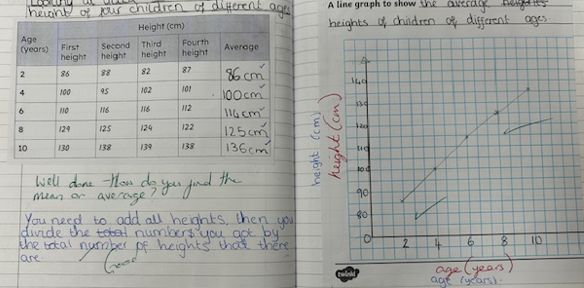 height of four children of different ages
Height (cm)
Age (years) First height Second height Third height Fourth height Average
2 86 88 82 87 86cm
4 100 95 102 101 100cm
6 110 116 116 112 114cm
8 124 125 124 122 125cm
10 130 138 139 138 136cm
Well done - How do you find the
mean or average?
You need to add all heights, then you
divide the total numbers you got by
the total number of heights that there
are.
Good
A line graph to show the average heights
heights of children of different ages
height (cm)
height (cm)
140
130
120
110
100
90
80
0
2 4 6 8 10
twinkl
age (years)
age (years).